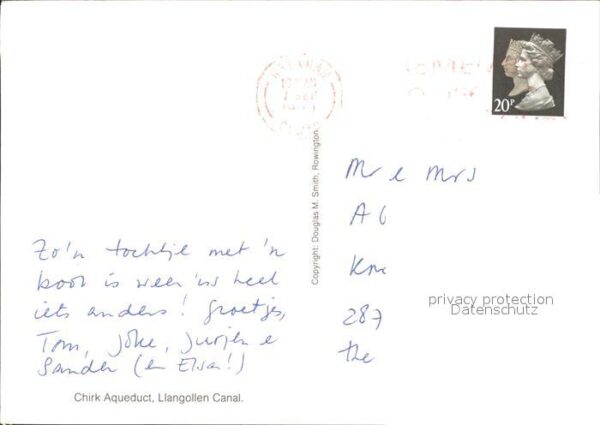 20P
WREXHAM
CLWYD
Copyright: Douglas M. Smith, Rowington.
Mr & Mrs
A
Kn
287
the
privacy protection
Datenschutz
Zo'n tochtje met 'n
boot is weer 'ns heel
iets anders! Groetjes,
Tom, Joke, Jurjen e
Sander (en Elsa!)
Chirk Aqueduct, Llangollen Canal.